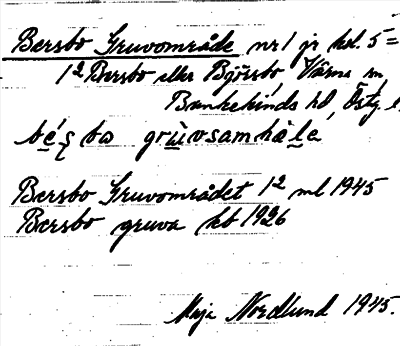 Bersbo Gruvområde nr 1 jr kol. 5 =
1² Bersbo eller Björsbo Värna sn,
Bankekinds hd, Östg. l.
bé̱ʂ bω grùvsamhàle
Bersbo Gruvområdet 1² ml 1945
Bersbo gruva kb 1926
Maja Nordlund 1945.